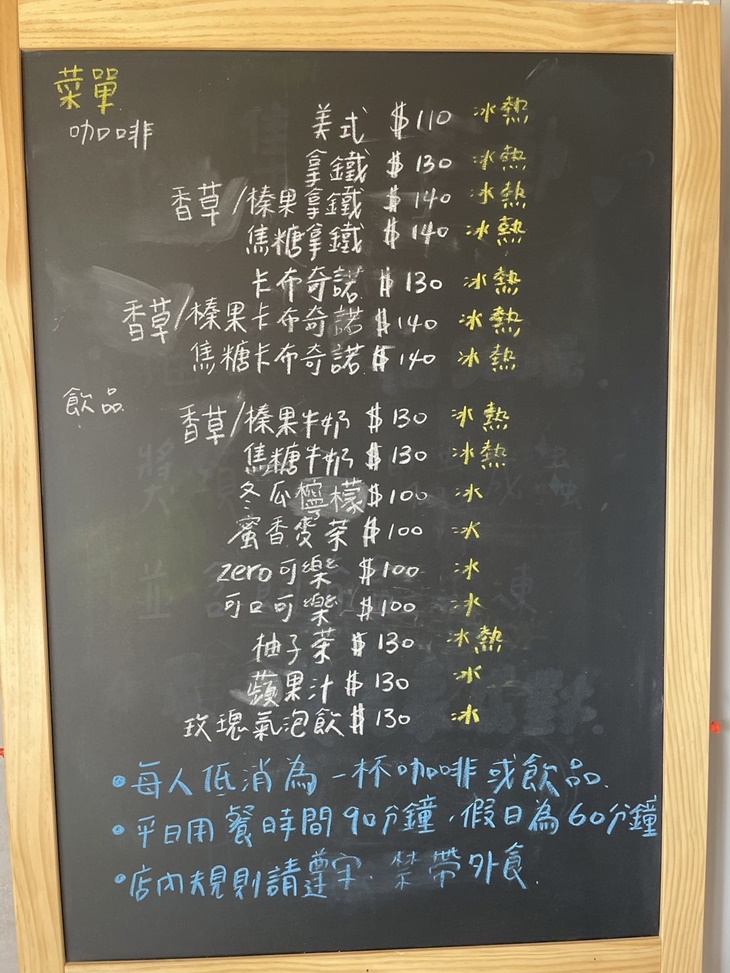 菜單
咖啡
美式 $110 冰熱
拿鐵 $130 冰熱
香草/榛果拿鐵 $140 冰熱
焦糖拿鐵 $140 冰熱
卡布奇諾 $130 冰熱
香草/榛果卡布奇諾 $140 冰熱
焦糖卡布奇諾 $140 冰熱
飲品
香草/榛果牛奶 $130 冰熱
焦糖牛奶 $130 冰熱
冬瓜檸檬 $100 冰
蜜香麥茶 $100 冰
zero可樂 $100 冰
可口可樂 $100 冰
柚子茶 $130 冰熱
蘋果汁 $130 冰
玫瑰氣泡飲 $130 冰
•每人低消為一杯咖啡或飲品.
•平日用餐時間90分鐘，假日為60分鐘
•店內規則請遵守. 禁帶外食.